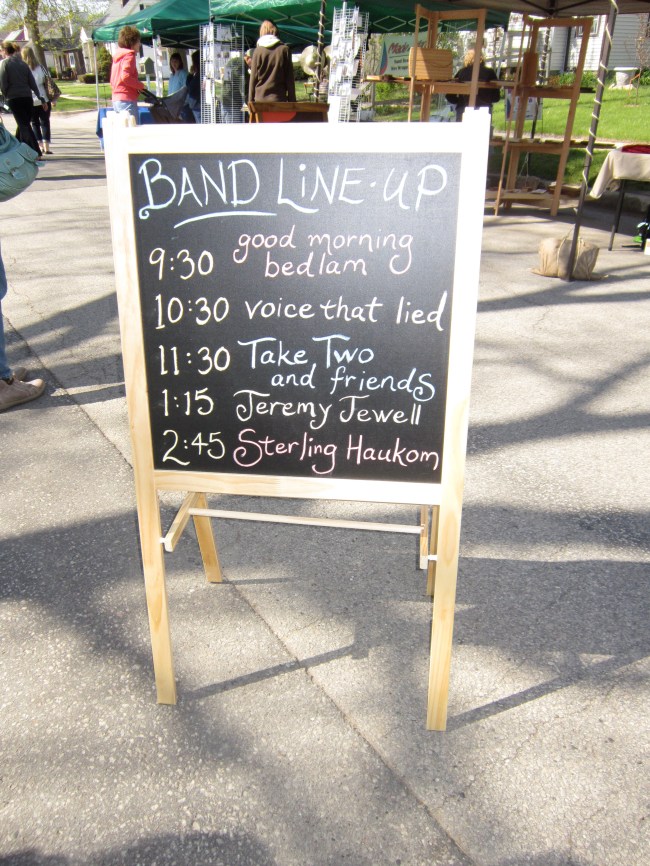 BAND LINE-UP
9:30 good morning
bedlam
10:30 voice that lied
11:30 Take Two
and friends
1:15 Jeremy Jewell
2:45 Sterling Haukom